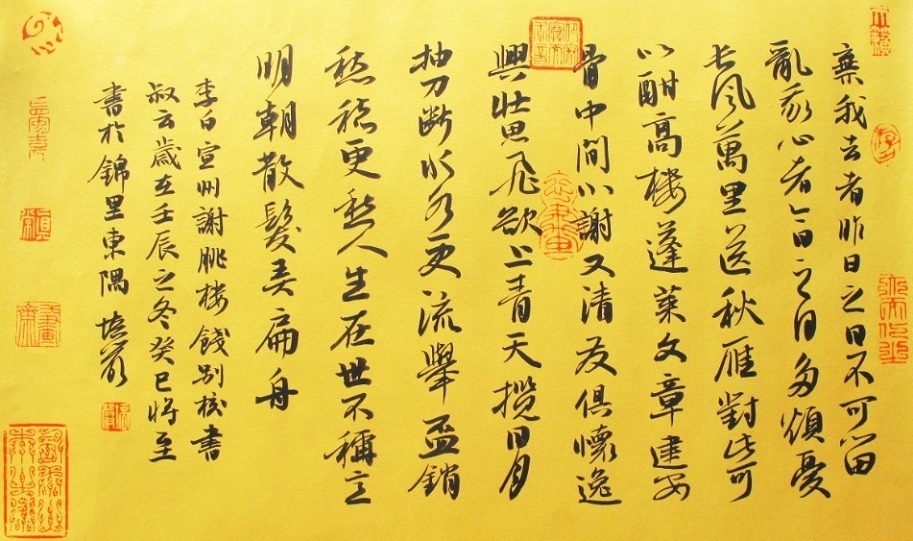 棄我去者昨日之日不可留
亂我心者今日之日多煩憂
長風萬里送秋雁對此可
以酣高樓蓬萊文章建安
骨中間小謝又清發俱懷逸
興壯思飛欲上青天攬日月
抽刀断水水更流舉盃銷
愁愁更愁人生在世不稱意
明朝散髮弄扁舟
李白宣州謝朓樓餞別校書
叔云歲在壬辰之冬癸巳將至
書於錦里東隅